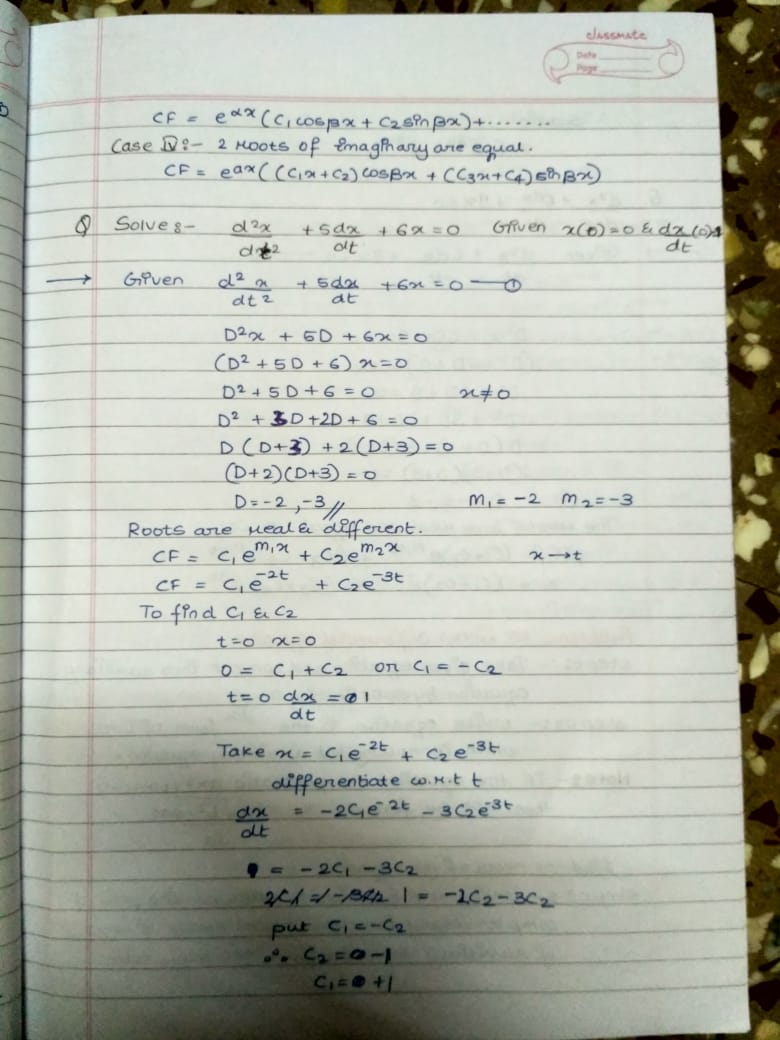 classmate
Date
Page
CF = e^αx (C₁cosβx + C₂sinβx)+.......
Case IV:- 2 roots of imaginary are equal.
CF = e^ax ((C₁x+C₂)cosβx + (C₃x+C₄)sinβx)
Q Solve:- d²x/dt² + 5dx/dt + 6x=0 Given x(0)=0 & dx/dt(0)=1
→ Given d²x/dt² + 5dx/dt +6x=0 —①
D²x + 5D + 6x=0
(D² + 5D + 6) x=0
D² + 5D + 6 = 0 x≠0
D² + 3D+2D + 6 = 0
D (D+3) + 2(D+3) = 0
(D+2)(D+3) = 0
D=-2, -3// m₁ = -2 m₂=-3
Roots are real & different.
CF = C₁e^m₁x + C₂e^m₂x x→t
CF = C₁e^-2t + C₂e^-3t
To find C₁ & C₂
t=0 x=0
0 = C₁ + C₂ or C₁ = -C₂
t=0 dx/dt = 1
Take x = C₁e^-2t + C₂e^-3t
differentiate w.r.t t
dx/dt = -2C₁e^-2t - 3C₂e^-3t
= -2C₁ - 3C₂
1 = -2C₂-3C₂
put C₁=-C₂
∴ C₂ = -1
C₁ = +1